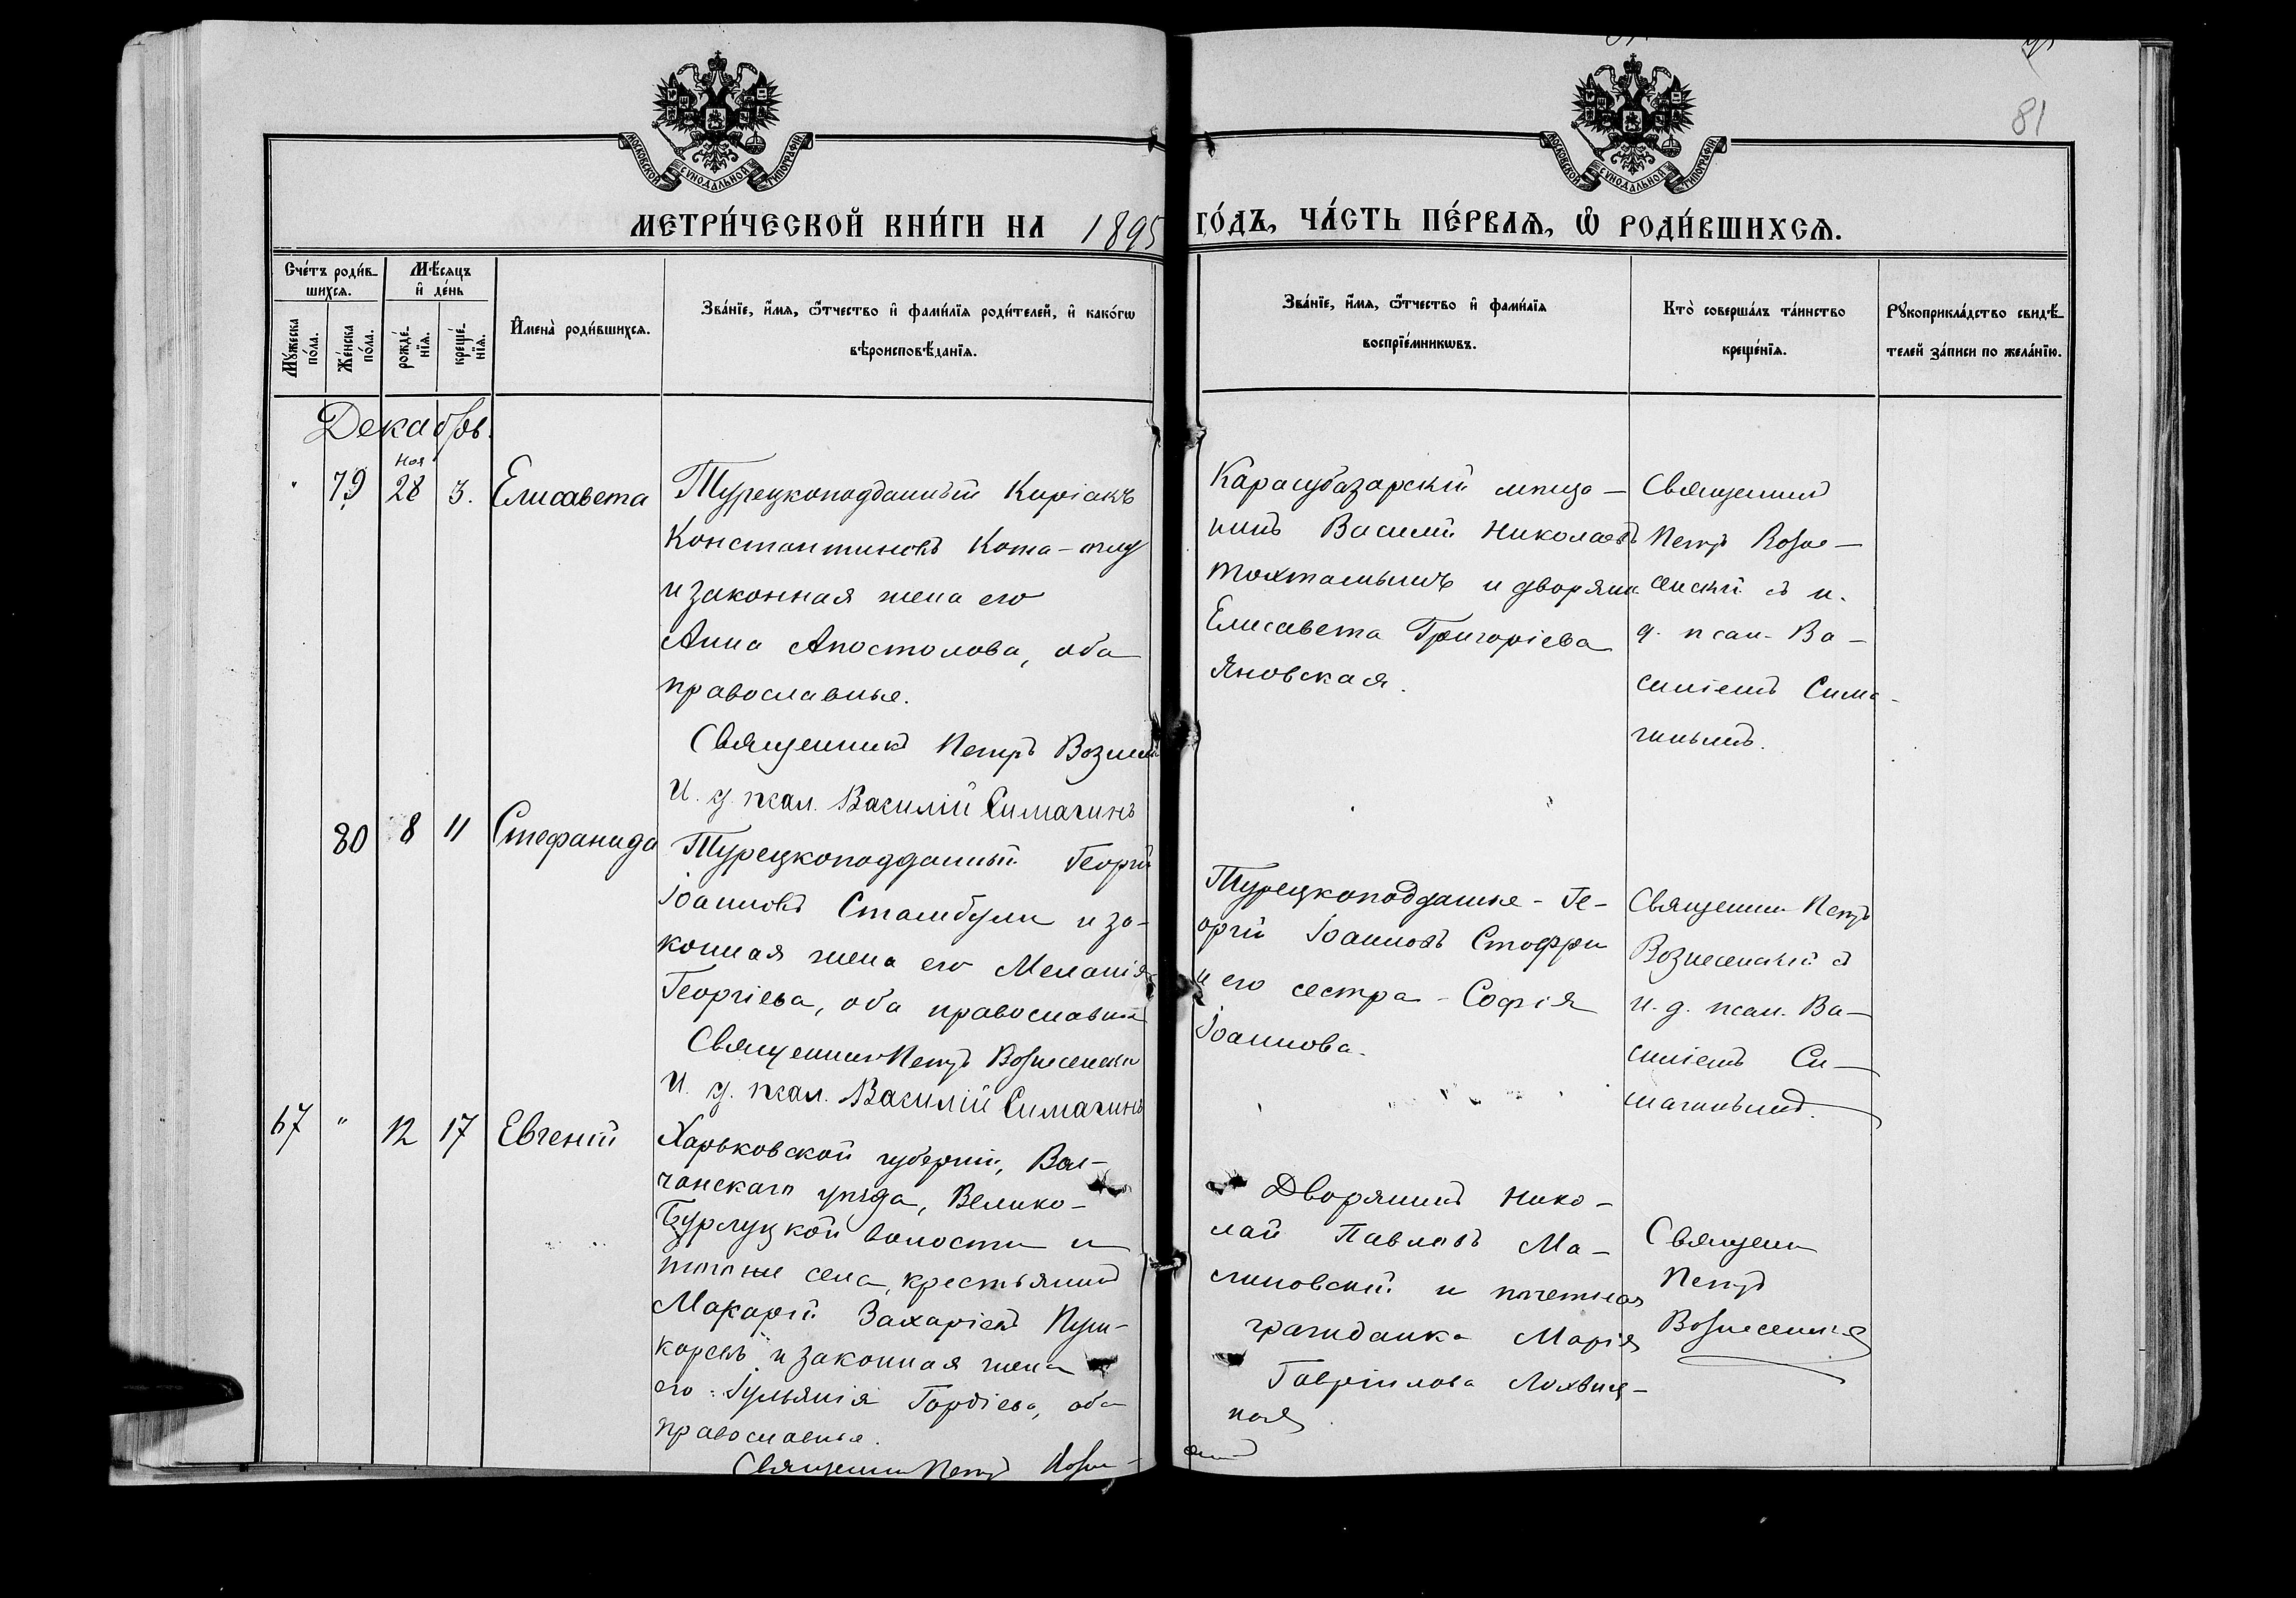 81
МОСКОВСКОЙ СѴНОДАЛЬНОЙ ТИПОГРАФІИ
МОСКОВСКОЙ СѴНОДАЛЬНОЙ ТИПОГРАФІИ
МЕТРИ́ЧЕСКОЙ КНИ́ГИ НА 1895 ГО́ДЪ, ЧА́СТЬ ПЕ́РВАѦ, Ѡ҆ РОДИ́ВШИХСѦ.
Сче́тъ роди́в-
шихсѧ.
Мꙋ́жеска по́ла.
Же́нска по́ла.
Мѣ́сѧцъ
и҆ де́нь
рожде́-нїѧ.
креще́-нїѧ.
И҆мена̀ роди́вшихсѧ.
Зва́нїе, и҆́мѧ, ѻ҆́тчество и҆ фами́лїѧ роди́телей, и҆ како́гѡ
вѣроисповѣ́данїѧ.
Зва́нїе, и҆́мѧ, ѻ҆́тчество и҆ фами́лїѧ
воспрїе́мникѡвъ.
Кто̀ соверша́лъ та́инство
креще́нїѧ.
Рꙋкоприкла́дство свидѣ́-
телей за́писи по жела́нїю.
Декабрь.
Ноя
" 79 28 3. Елисавета
Турецкоподданный Киріакъ
Константиновъ Кота-оглу
и законная жена его
Анна Апостолова, оба
православные.
Священникъ Петръ Вознесен
И. д. псал. Василій Симагинъ
Карасубазарскій мѣща-
нинъ Василій Николаевъ
Тохтамышъ и дворянк.
Елисавета Григоріева
Яновская.
Священникъ
Петръ Возне-
сенскій съ и.
д. псал. Ва-
силіемъ Сима-
гинымъ.
80 8 11 Стефанида
Турецкоподданный Георгій
Іоанновъ Стамбули и за-
конная жена его Меланія
Георгіева, оба православные
Священникъ Петръ Вознесенскій
И. д. псал. Василій Симагинъ
Турецкоподданные - Ге-
оргій Іоанновъ Стоффи
и его сестра - Софія
Іоаннова.
Священник Петръ
Вознесенскій съ
и. д. псал. Ва-
силіемъ Си-
магинымъ.
67 " 12 17 Евгеній
Харьковской губерніи, Вол-
чанскаго уѣзда, Велико-
Бурлуцкой волости и
того же села, крестьянинъ
Макарій Захаріевъ Пуш-
каревъ и законная жена
его: Іуліанія Гордіева, оба
православные.
Священник Петръ Возне-
сенскій
Дворянинъ Нико-
лай Павловъ Ма-
линовскій и почетная
гражданка Марія
Гавріилова Лохвиц-
кая.
Священ
Петръ
Вознесенскій